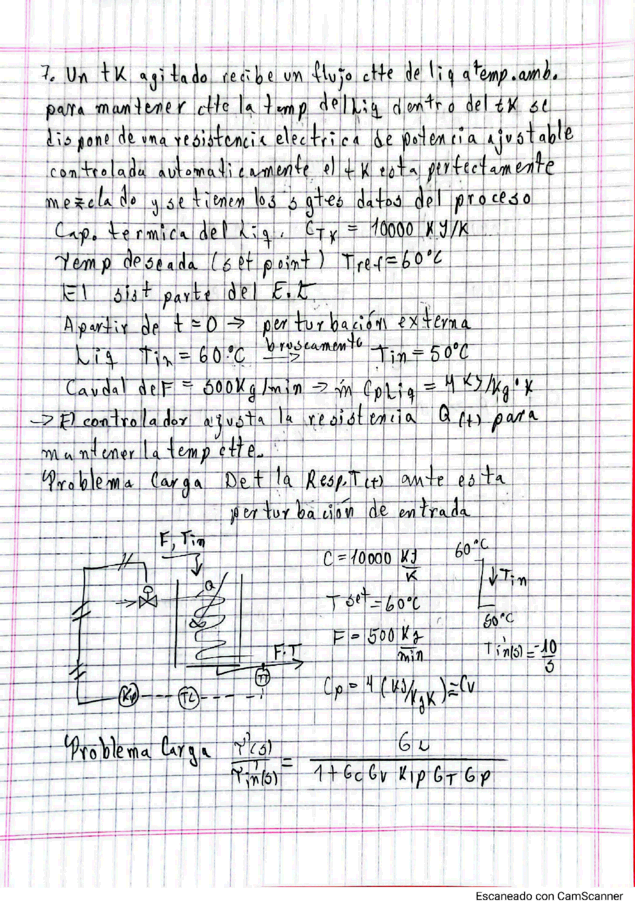 7. Un tK agitado recibe un flujo ctte de liq a temp. amb.
para mantener ctte la temp del Liq dentro del tK se
dispone de una resistencia electrica de potencia ajustable
controlada automaticamente el tK esta perfectamente
mezclado y se tienen los sgtes datos del proceso
Cap. termica del Liq. CTK = 10000 KJ/K
Temp deseada (set point) Tref=60°C
El sist parte del E.E
A partir de t=0 → perturbación externa
Liq Tin = 60°C bruscamente → Tin = 50°C
Caudal de F = 500Kg/min → ṁ CpLiq = 4 KJ/Kg°K
→ El controlador ajusta la resistencia Q(t) para
mantener la temp ctte.
Problema Carga Det la Resp. T(t) ante esta
perturbación de entrada
F, Tin
C = 10000 KJ/K
60°C
↓Tin
50°C
Q
T set = 60°C
F = 500 Kg/min
T'in(s) = -10/S
F.T
TT
KIP
TC
Cp = 4 (KJ/KgK) ≅ Cv
Problema Carga T'(s)/T'in(s) = GL / 1 + Gc Gv KIP GT GP
Escaneado con CamScanner